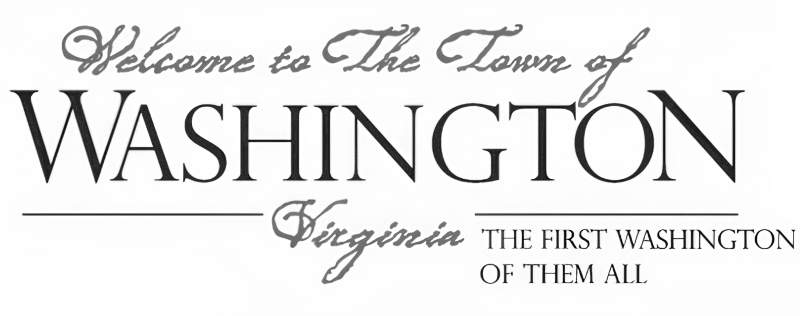 Welcome to The Town of
WASHINGTON
Virginia
THE FIRST WASHINGTON
OF THEM ALL